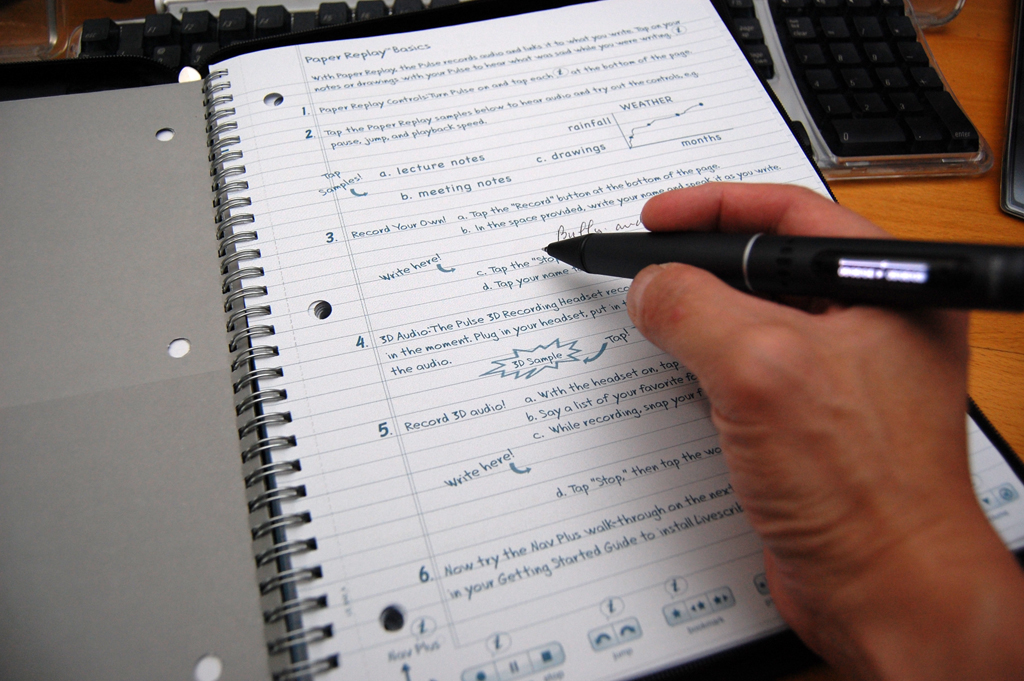 Paper Replay-Basics
With Paper Replay, the Pulse records audio and links it to what you write. Tap on your
notes or drawings with your Pulse to hear what was said while you were writing. i
1. Paper Replay Controls-Turn Pulse on and tap each i at the bottom of the page.
2. Tap the Paper Replay samples below to hear audio and try out the controls, e.g.
pause, jump, and playback speed.
WEATHER
rainfall
months
Tap
Samples!
a. lecture notes
c. drawings
b. meeting notes
3. Record Your Own! a. Tap the "Record" button at the bottom of the page.
b. In the space provided, write your name and speak it as you write.
Buffy
Write here!
c. Tap the "Stop
d. Tap your name
4. 3D Audio-The Pulse 3D Recording Headset
in the moment. Plug in your headset, put in
the audio.
3D Sample
Tap!
5. Record 3D audio! a. With the headset on, tap
b. Say a list of your favorite
c. While recording, snap your
Write here!
d. Tap "Stop," then tap the
6. Now try the Nav Plus walk-through on the next
in your Getting Started Guide to install
Nav Plus
i
i
i
stop
jump
bookmark
enter